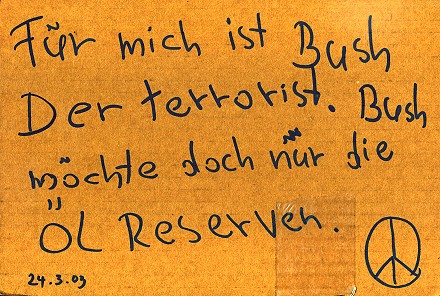 Für mich ist Bush
Der terrorist. Bush
möchte doch nur die
ÖL Reserven.
24.3.03